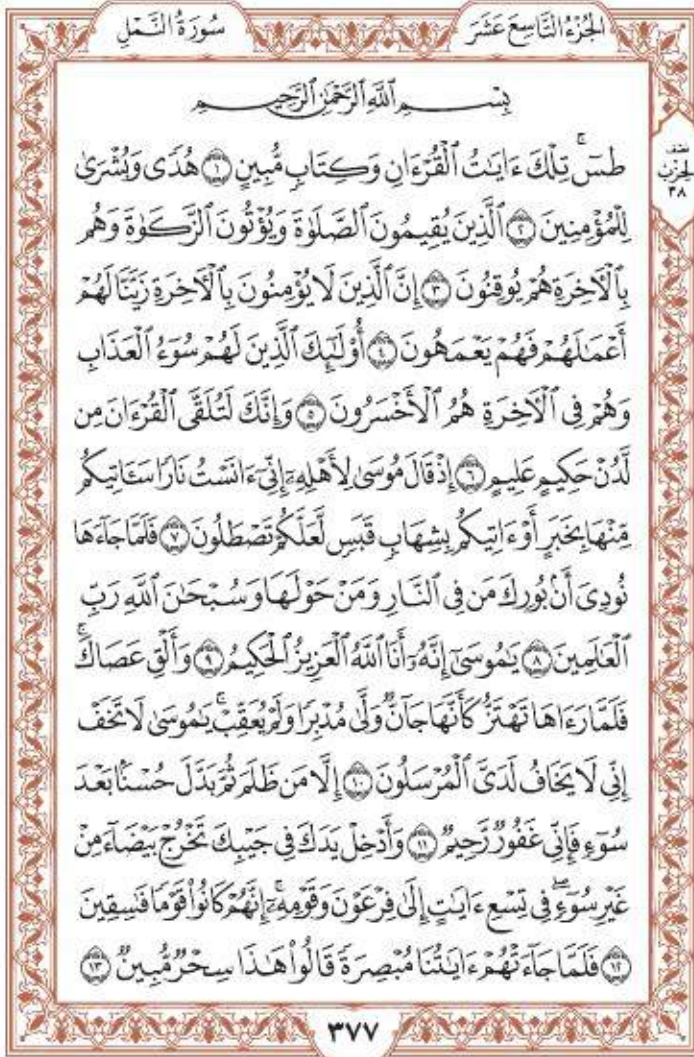 الجُزْءُ التَّاسِعَ عَشَرَ
سُورَةُ النَّمْلِ
نصف
الحزب
٣٨
بِسْمِ ٱللَّهِ ٱلرَّحْمَٰنِ ٱلرَّحِيمِ
طسٓۚ تِلْكَ ءَايَٰتُ ٱلْقُرْءَانِ وَكِتَابٖ مُّبِينٍ ١ هُدٗى وَبُشْرَىٰ
لِلْمُؤْمِنِينَ ٢ ٱلَّذِينَ يُقِيمُونَ ٱلصَّلَوٰةَ وَيُؤْتُونَ ٱلزَّكَوٰةَ وَهُم
بِٱلْأٓخِرَةِ هُمْ يُوقِنُونَ ٣ إِنَّ ٱلَّذِينَ لَا يُؤْمِنُونَ بِٱلْأٓخِرَةِ زَيَّنَّا لَهُمْ
أَعْمَٰلَهُمْ فَهُمْ يَعْمَهُونَ ٤ أُوْلَٰٓئِكَ ٱلَّذِينَ لَهُمْ سُوٓءُ ٱلْعَذَابِ
وَهُمْ فِي ٱلْأٓخِرَةِ هُمُ ٱلْأَخْسَرُونَ ٥ وَإِنَّكَ لَتُلَقَّى ٱلْقُرْءَانَ مِن
لَّدُنْ حَكِيمٍ عَلِيمٍ ٦ إِذْ قَالَ مُوسَىٰ لِأَهْلِهِۦٓ إِنِّيٓ ءَانَسْتُ نَارٗا سَـَٔاتِيكُم
مِّنْهَا بِخَبَرٍ أَوْ ءَاتِيكُم بِشِهَابٖ قَبَسٖ لَّعَلَّكُمْ تَصْطَلُونَ ٧ فَلَمَّا جَآءَهَا
نُودِيَ أَنۢ بُورِكَ مَن فِي ٱلنَّارِ وَمَنْ حَوْلَهَا وَسُبْحَٰنَ ٱللَّهِ رَبِّ
ٱلْعَٰلَمِينَ ٨ يَٰمُوسَىٰٓ إِنَّهُۥٓ أَنَا ٱللَّهُ ٱلْعَزِيزُ ٱلْحَكِيمُ ٩ وَأَلْقِ عَصَاكَۚ
فَلَمَّا رَءَاهَا تَهْتَزُّ كَأَنَّهَا جَآنّٞ وَلَّىٰ مُدْبِرٗا وَلَمْ يُعَقِّبْۚ يَٰمُوسَىٰ لَا تَخَفْ
إِنِّي لَا يَخَافُ لَدَيَّ ٱلْمُرْسَلُونَ ١٠ إِلَّا مَن ظَلَمَ ثُمَّ بَدَّلَ حُسْنَۢا بَعْدَ
سُوٓءٖ فَإِنِّي غَفُورٞ رَّحِيمٞ ١١ وَأَدْخِلْ يَدَكَ فِي جَيْبِكَ تَخْرُجْ بَيْضَآءَ مِنْ
غَيْرِ سُوٓءٖۖ فِي تِسْعِ ءَايَٰتٍ إِلَىٰ فِرْعَوْنَ وَقَوْمِهِۦٓۚ إِنَّهُمْ كَانُواْ قَوْمٗا فَٰسِقِينَ
١٢ فَلَمَّا جَآءَتْهُمْ ءَايَٰتُنَا مُبْصِرَةٗ قَالُواْ هَٰذَا سِحْرٞ مُّبِينٞ ١٣
٣٧٧